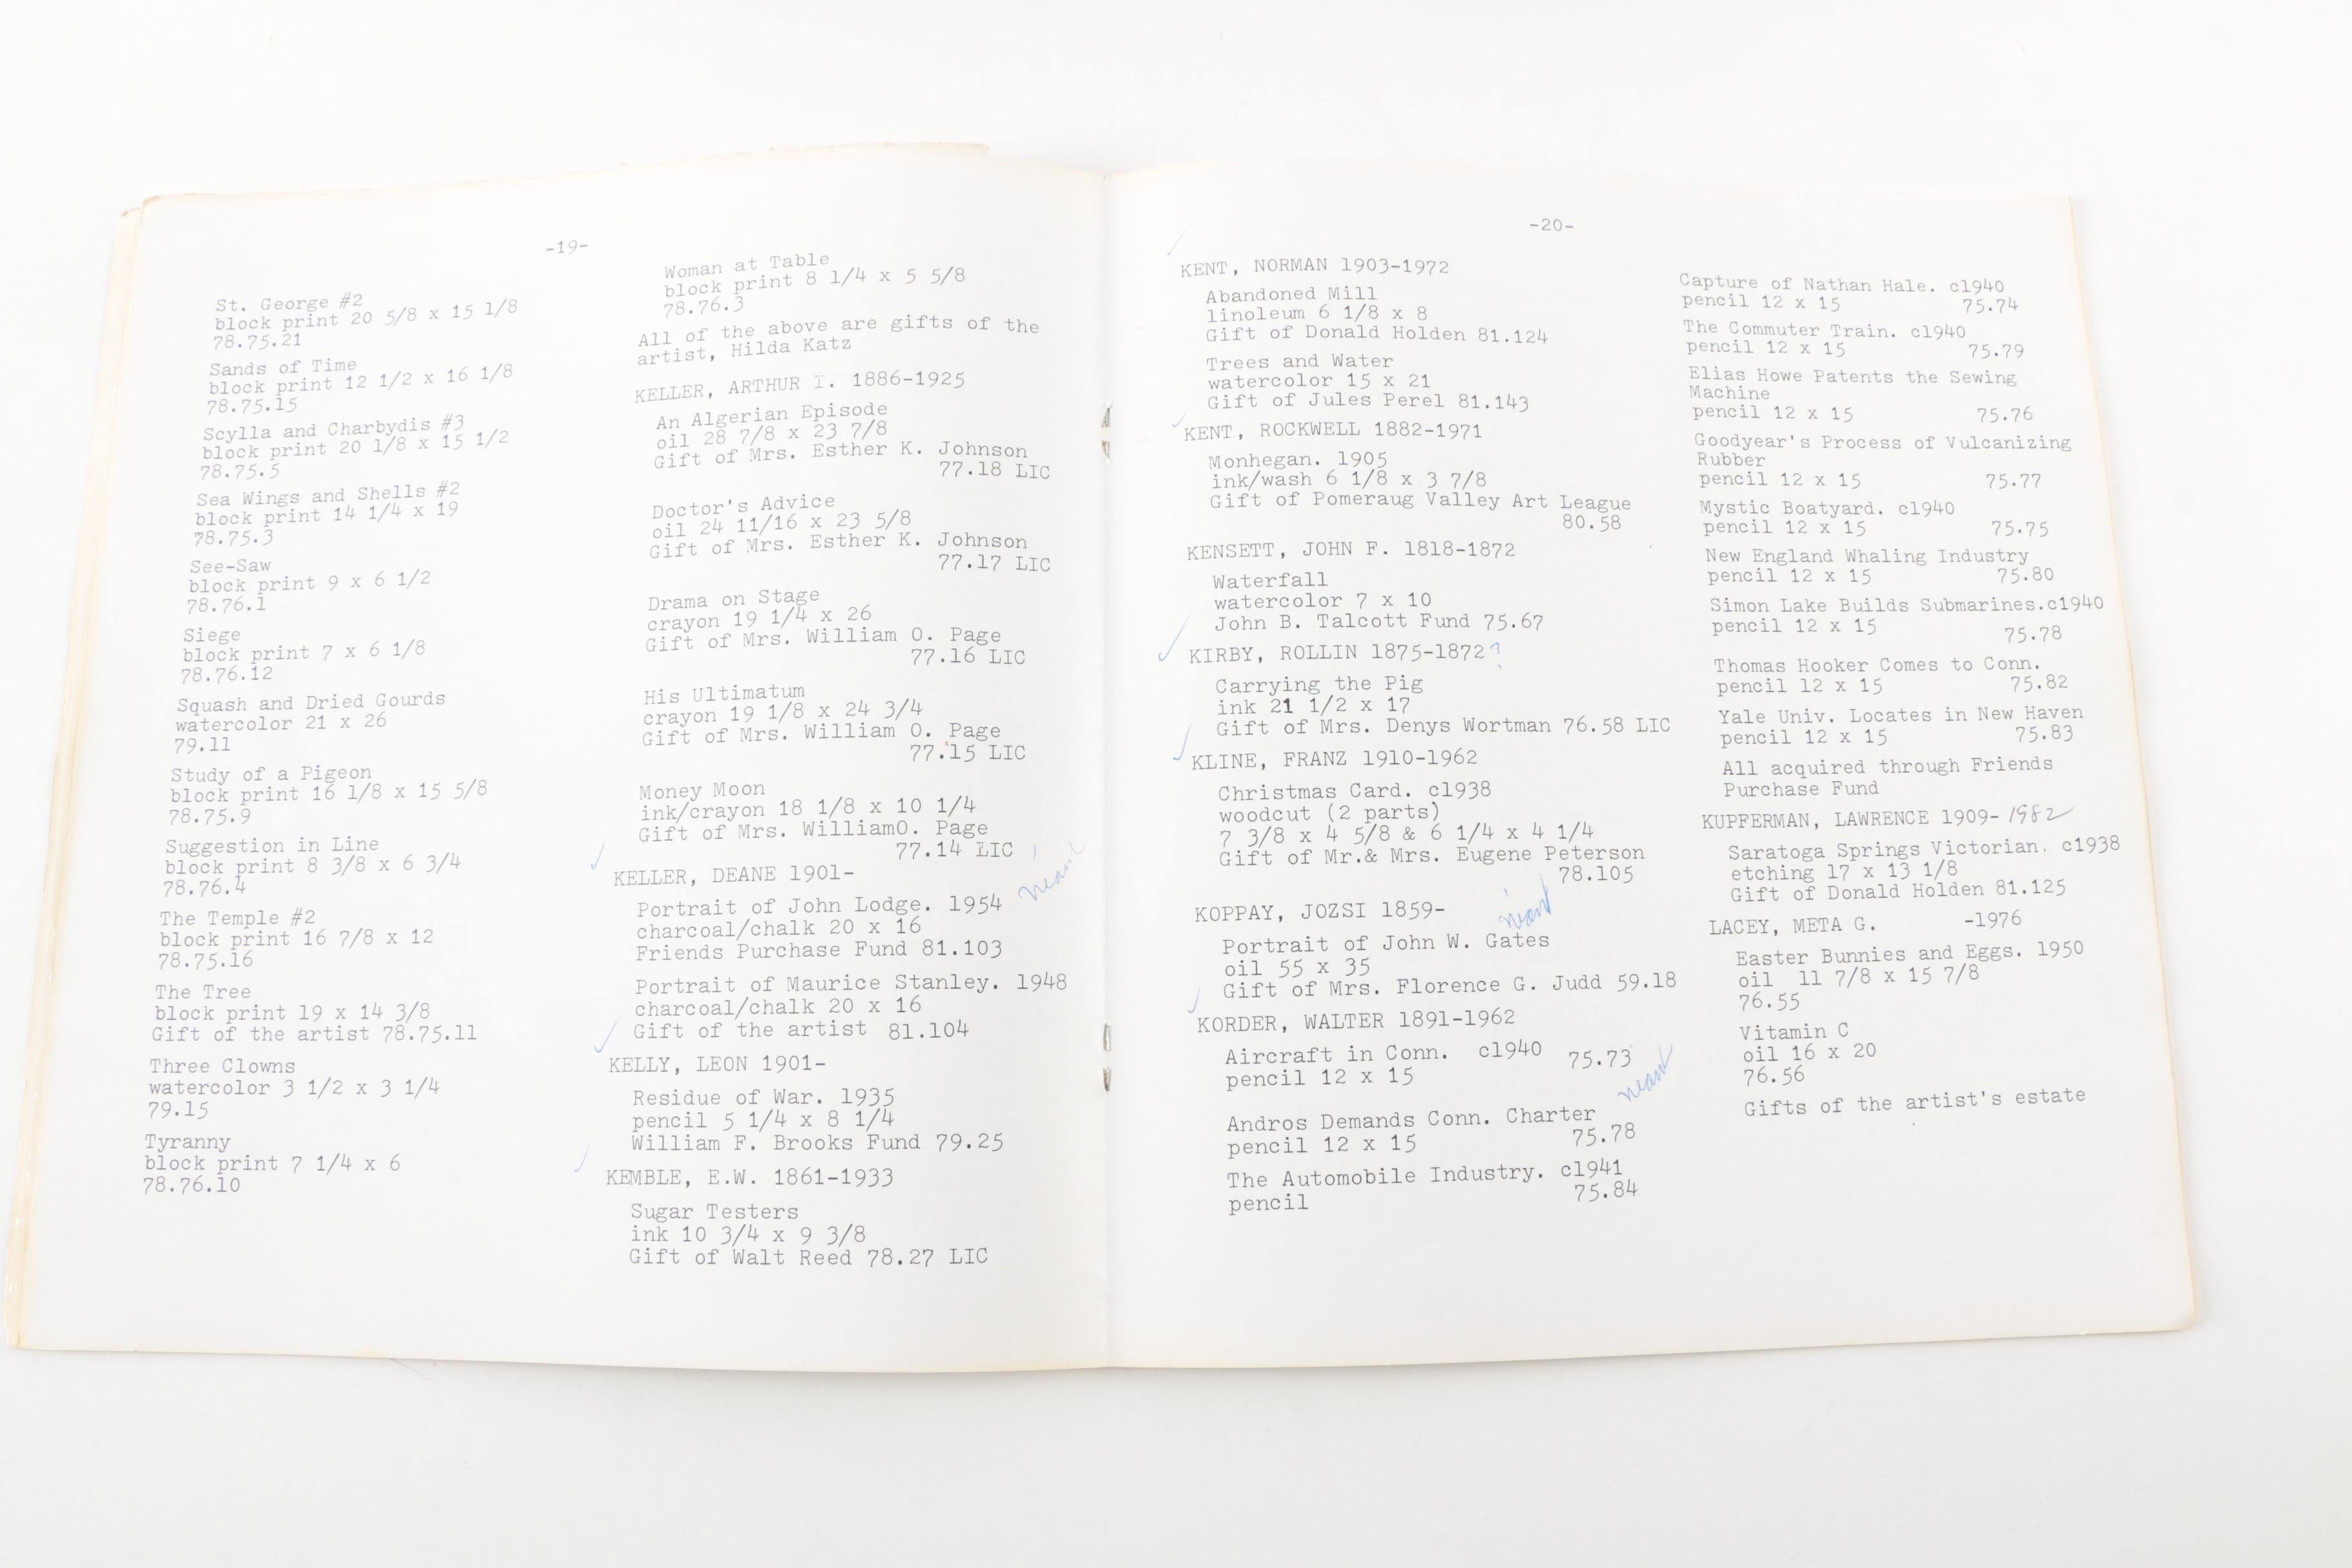 -19-
St. George #2
block print 20 5/8 x 15 1/8
78.75.21
Sands of Time
block print 12 1/2 x 16 1/8
78.75.15
Scylla and Charbydis #3
block print 20 1/8 x 15 1/2
78.75.5
Sea Wings and Shells #2
block print 14 1/4 x 19
78.75.3
See-Saw
block print 9 x 6 1/2
78.76.1
Siege
block print 7 x 6 1/8
78.76.12
Squash and Dried Gourds
watercolor 21 x 26
79.11
Study of a Pigeon
block print 16 1/8 x 15 5/8
78.75.9
Suggestion in Line
block print 8 3/8 x 6 3/4
78.76.4
The Temple #2
block print 16 7/8 x 12
78.75.16
The Tree
block print 19 x 14 3/8
Gift of the artist 78.75.11
Three Clowns
watercolor 3 1/2 x 3 1/4
79.15
Tyranny
block print 7 1/4 x 6
78.76.10
Woman at Table
block print 8 1/4 x 5 5/8
78.76.3
All of the above are gifts of the
artist, Hilda Katz
KELLER, ARTHUR I. 1886-1925
An Algerian Episode
oil 28 7/8 x 23 7/8
Gift of Mrs. Esther K. Johnson
77.18 LIC
Doctor's Advice
oil 24 11/16 x 23 5/8
Gift of Mrs. Esther K. Johnson
77.17 LIC
Drama on Stage
crayon 19 1/4 x 26
Gift of Mrs. William O. Page
77.16 LIC
His Ultimatum
crayon 19 1/8 x 24 3/4
Gift of Mrs. William O. Page
77.15 LIC
Money Moon
ink/crayon 18 1/8 x 10 1/4
Gift of Mrs. WilliamO. Page
77.14 LIC
KELLER, DEANE 1901-
Portrait of John Lodge. 1954
charcoal/chalk 20 x 16
Friends Purchase Fund 81.103
Portrait of Maurice Stanley. 1948
charcoal/chalk 20 x 16
Gift of the artist 81.104
KELLY, LEON 1901-
Residue of War. 1935
pencil 5 1/4 x 8 1/4
William F. Brooks Fund 79.25
KEMBLE, E.W. 1861-1933
Sugar Testers
ink 10 3/4 x 9 3/8
Gift of Walt Reed 78.27 LIC
-20-
KENT, NORMAN 1903-1972
Abandoned Mill
linoleum 6 1/8 x 8
Gift of Donald Holden 81.124
Trees and Water
watercolor 15 x 21
Gift of Jules Perel 81.143
KENT, ROCKWELL 1882-1971
Monhegan. 1905
ink/wash 6 1/8 x 3 7/8
Gift of Pomeraug Valley Art League
80.58
KENSETT, JOHN F. 1818-1872
Waterfall
watercolor 7 x 10
John B. Talcott Fund 75.67
KIRBY, ROLLIN 1875-1872?
Carrying the Pig
ink 21 1/2 x 17
Gift of Mrs. Denys Wortman 76.58 LIC
KLINE, FRANZ 1910-1962
Christmas Card. c1938
woodcut (2 parts)
7 3/8 x 4 5/8 & 6 1/4 x 4 1/4
Gift of Mr.& Mrs. Eugene Peterson
78.105
KOPPAY, JOZSI 1859-
Portrait of John W. Gates
oil 55 x 35
Gift of Mrs. Florence G. Judd 59.18
KORDER, WALTER 1891-1962
Aircraft in Conn. c1940 75.73
pencil 12 x 15
Andros Demands Conn. Charter
pencil 12 x 15 75.78
The Automobile Industry. c1941
pencil 75.84
Capture of Nathan Hale. c1940
pencil 12 x 15 75.74
The Commuter Train. c1940
pencil 12 x 15 75.79
Elias Howe Patents the Sewing
Machine
pencil 12 x 15 75.76
Goodyear's Process of Vulcanizing
Rubber
pencil 12 x 15 75.77
Mystic Boatyard. c1940
pencil 12 x 15 75.75
New England Whaling Industry
pencil 12 x 15 75.80
Simon Lake Builds Submarines.c1940
pencil 12 x 15 75.78
Thomas Hooker Comes to Conn.
pencil 12 x 15 75.82
Yale Univ. Locates in New Haven
pencil 12 x 15 75.83
All acquired through Friends
Purchase Fund
KUPFERMAN, LAWRENCE 1909-1982
Saratoga Springs Victorian. c1938
etching 17 x 13 1/8
Gift of Donald Holden 81.125
LACEY, META G. -1976
Easter Bunnies and Eggs. 1950
oil 11 7/8 x 15 7/8
76.55
Vitamin C
oil 16 x 20
76.56
Gifts of the artist's estate